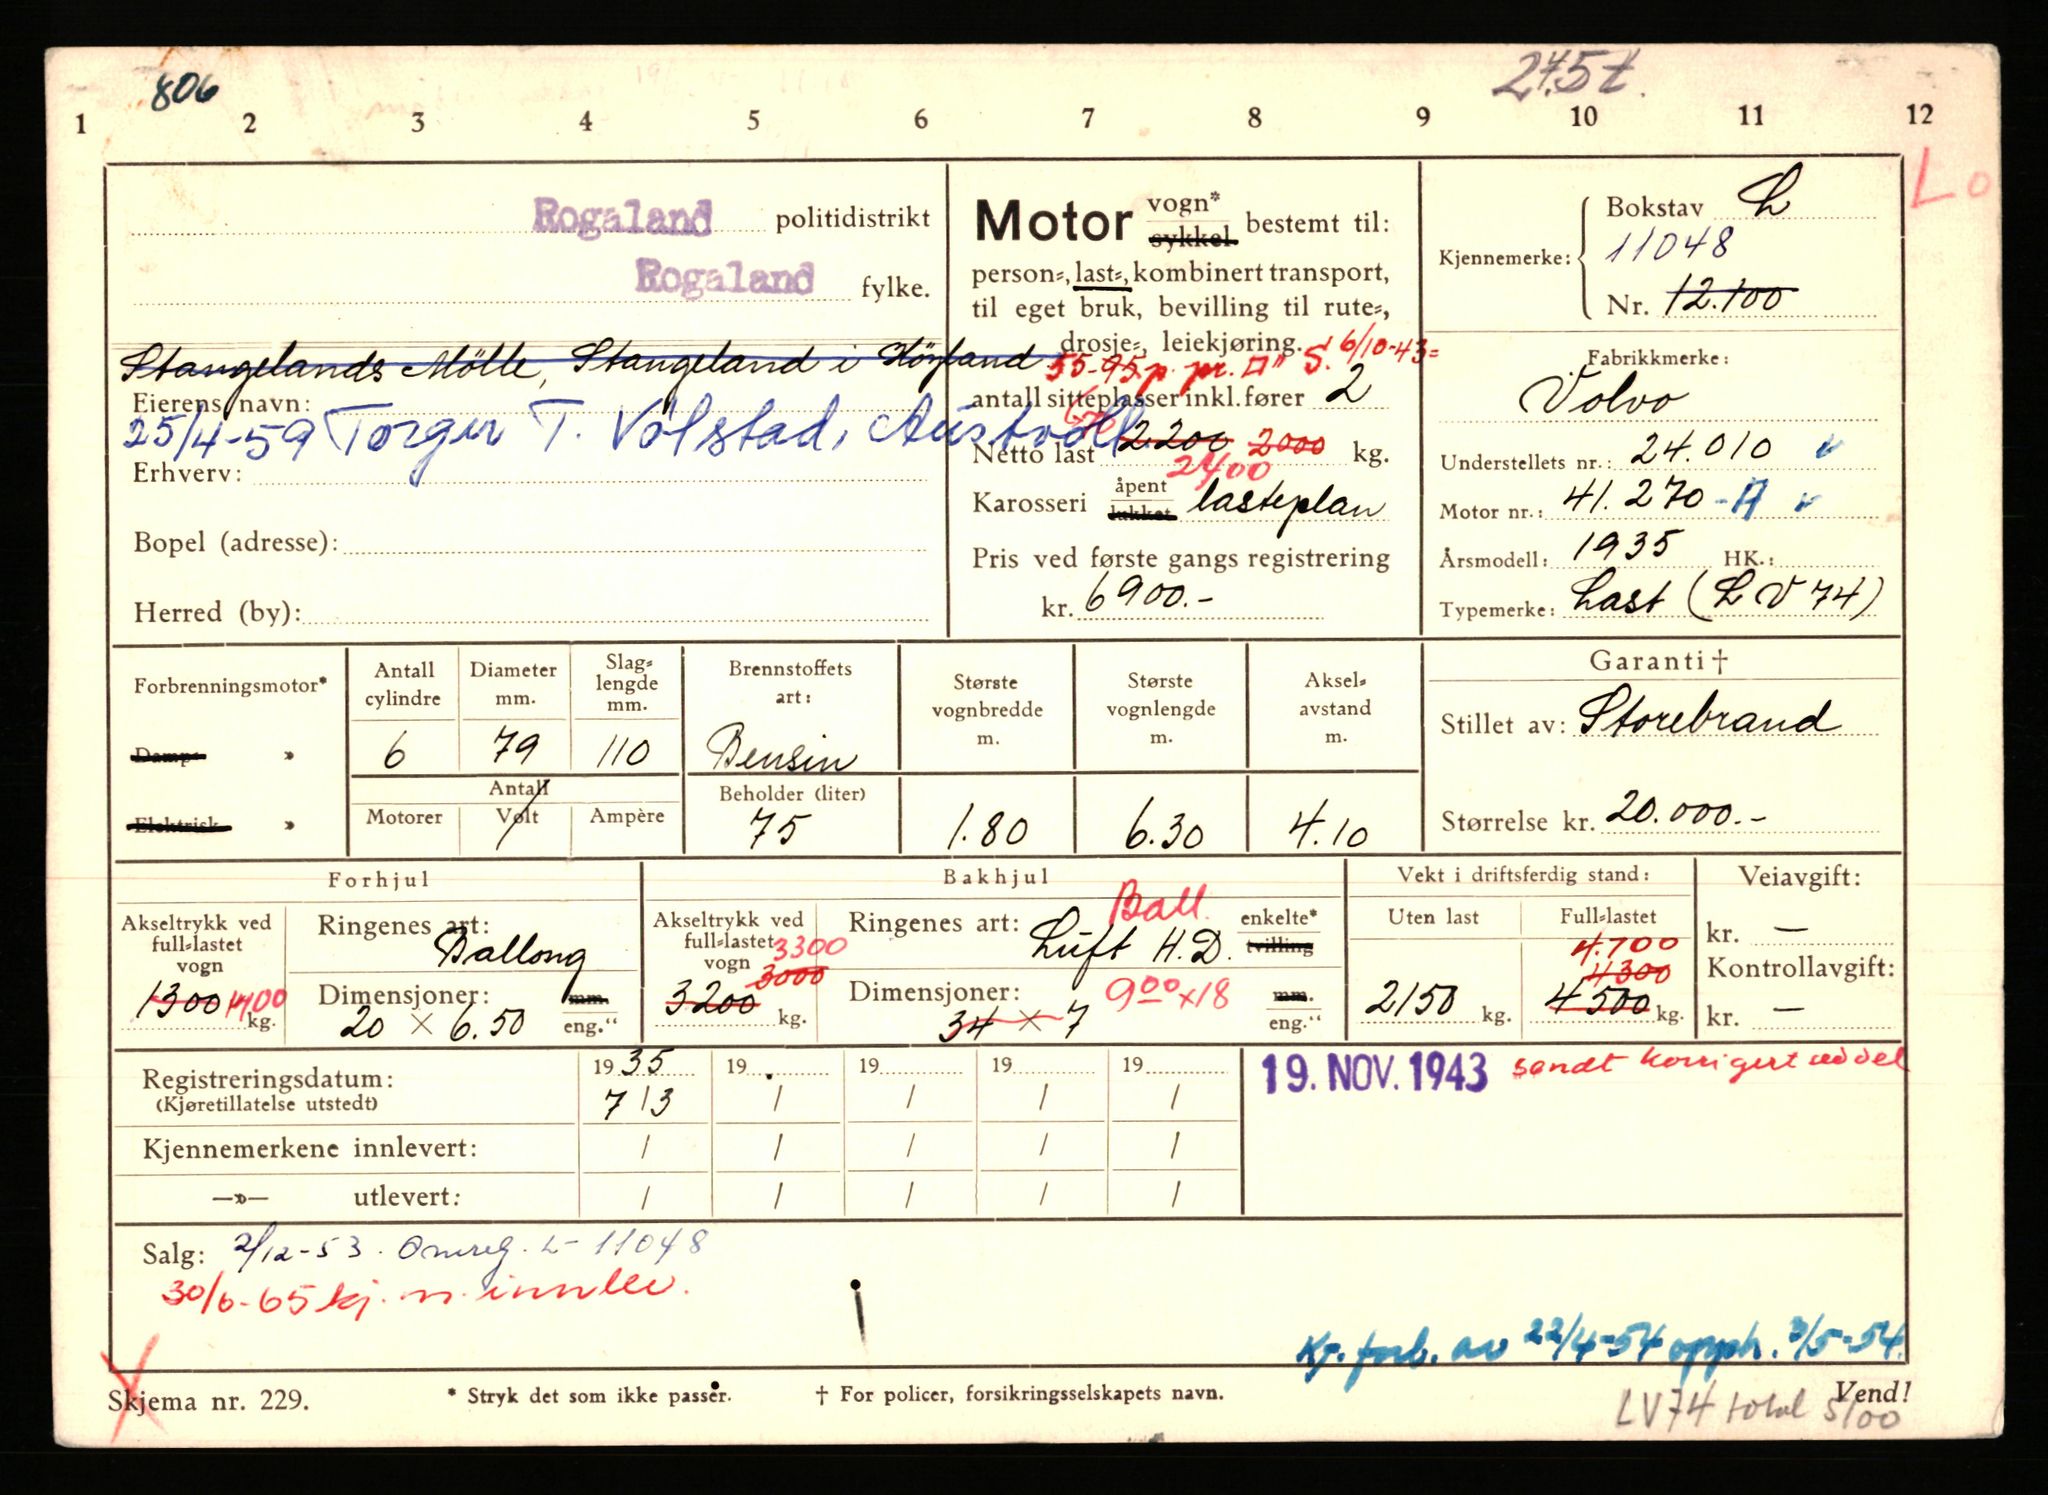 806
27.5 t.
1 2 3 4 5 6 7 8 9 10 11 12
Lo
Rogaland politidistrikt
Rogaland fylke.
Stangelands Mölle, Stangeland i Höyland
Eierens navn:
25/4-59 Torger T. Völstad, Austvoll
Erhverv:
Bopel (adresse):
Herred (by):
Motor vogn* sykkel bestemt til:
person=, last=, kombinert transport,
til eget bruk, bevilling til rute=,
drosje=, leiekjøring.
55-95 p. pr. □" S. 6/10-43=
antall sitteplasser inkl. fører 2
Netto last 2200 2000 kg.
2400
Karosseri åpent lukket lasteplan
Pris ved første gangs registrering
kr. 6900.-
Kjennemerke: Bokstav L
11048
Nr. 12.100
Fabrikkmerke:
Volvo
Understellets nr.: 24.010
Motor nr.: 41.270 - A
Årsmodell: 1935 HK.:
Typemerke: Last (LV 74)
Forbrenningsmotor*
Damp= »
Elektrisk »
Antall cylindre
6
Diameter mm.
79
Slag= lengde mm.
110
Antall
Motorer Volt Ampère
Brennstoffets art:
Bensin
Beholder (liter)
75
Største vognbredde m.
1.80
Største vognlengde m.
6.30
Aksel= avstand m.
4.10
Garanti †
Stillet av: Storebrand
Størrelse kr. 20.000.-
Forhjul
Akseltrykk ved full=lastet vogn
1300 1400 kg.
Ringenes art:
Ballong
Dimensjoner: mm.
20 × 6.50 eng."
Bakhjul
Akseltrykk ved full=lastet vogn
3300
3000
3200 kg.
Ringenes art: Ball. enkelte*
Luft H.D. tvilling
Dimensjoner: 9 00 × 18 mm.
34 × 7 eng."
Vekt i driftsferdig stand:
Uten last
2150 kg.
Full=lastet
4.700
4300
4500 kg.
Veiavgift:
kr. —
Kontrollavgift:
kr. —
Registreringsdatum: 19 35 19 19 19 19
(Kjøretillatelse utstedt) 7/3 / / / /
Kjennemerkene innlevert: / / / / /
—»— utlevert: / / / / /
19. NOV. 1943 sendt korrigert veddel
Salg: 2/12-53. Omreg. L- 11048
30/6-65 kj. m. innlev.
Kj. forb. av 22/4-54 opph. 3/5-54.
Skjema nr. 229. * Stryk det som ikke passer. † For policer, forsikringsselskapets navn. Vend!
LV74 total 5100